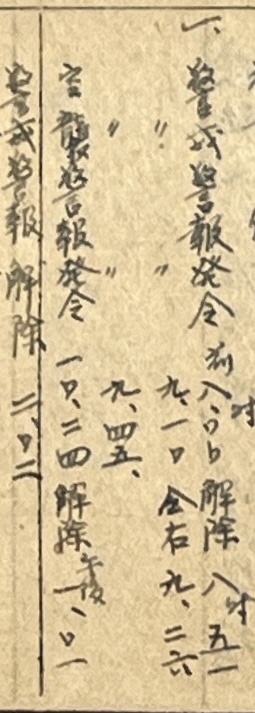 一、警戒警報発令 八時、〇〇 解除 八時五一
〃 〃 九、一〇 仝右 九、二六
〃 〃 九、四五、
空襲警報発令 一〇、二四 解除 午後一、〇一
警戒警報解除 二、〇二